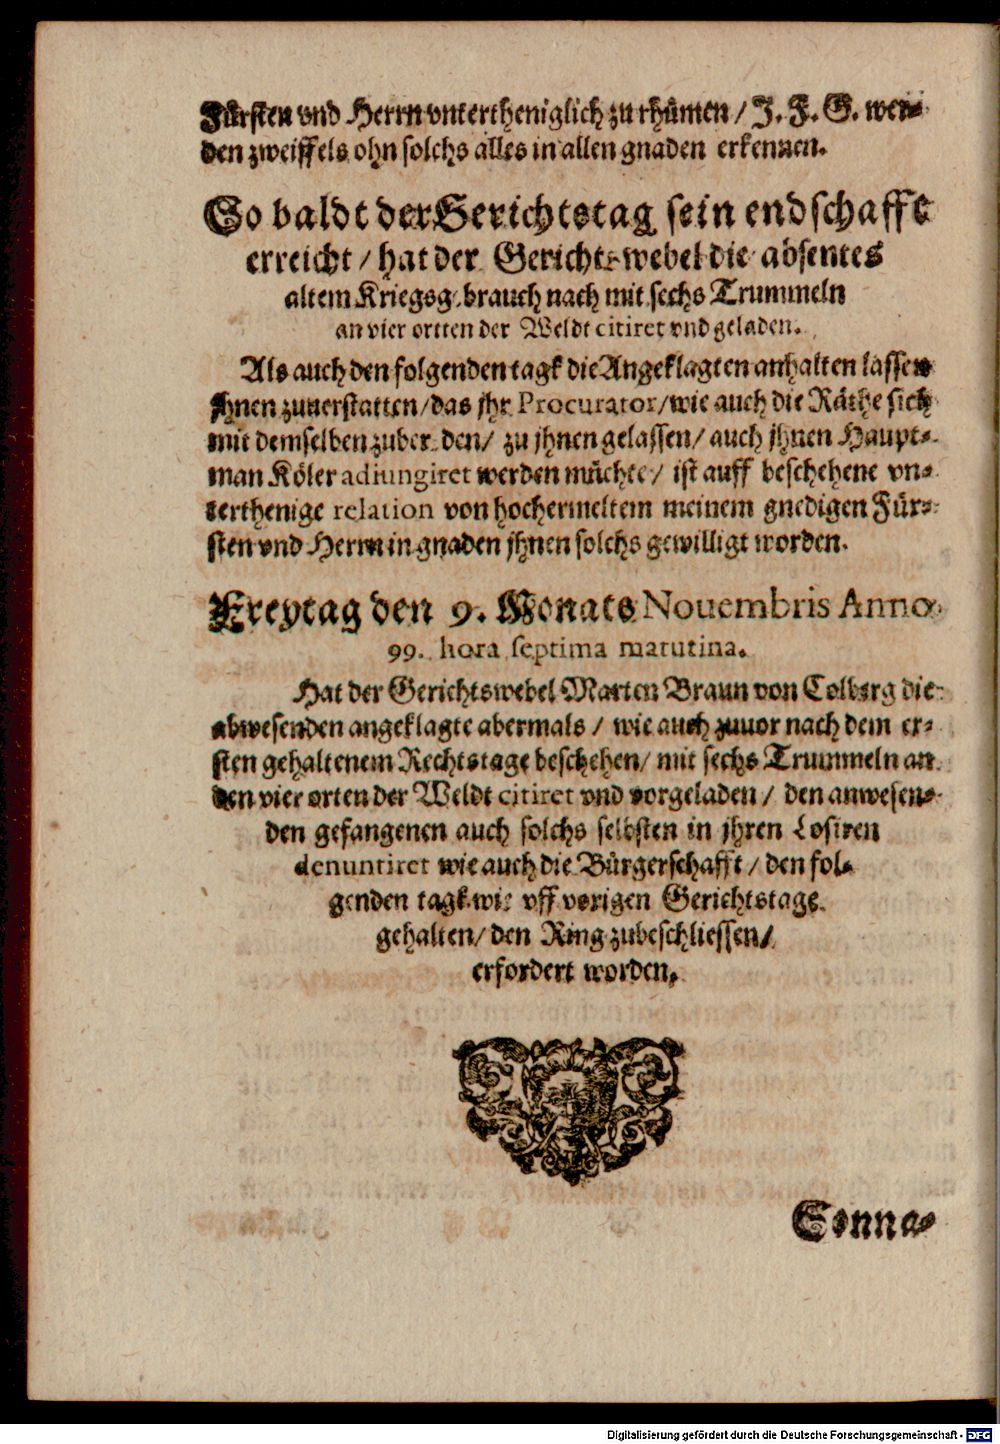 Fürsten vnd Herrn vntertheniglich zu rhümen / J. F. G. wer-
den zweiffels ohn solchs alles in allen gnaden erkennen.
So baldt der Gerichtstag sein endschafft
erreicht / hat der Gerichtswebel die absentes
altem Kriegsgebrauch nach mit sechs Trummeln
an vier ortten der Weldt citiret vnd geladen.
Als auch den folgenden tagk die Angeklagten anhalten lassen
jhnen zuuerstatten / das jhr Procurator / wie auch die Räthe sich
mit demselben zubereden / zu jhnen gelassen / auch jhnen Haupt-
man Köler adiungiret werden müchte / ist auff beschehene vn-
terthenige relation von hochermeltem meinem gnedigen Für-
sten vnd Herrn in gnaden jhnen solchs gewilligt worden.
Freytag den 9. Monats Nouembris Anno
99. hora septima matutina.
Hat der Gerichtswebel Marten Braun von Colberg die
abwesenden angeklagte abermals / wie auch zuuor nach dem er-
sten gehaltenem Rechtstage beschehen / mit sechs Trummeln an
den vier orten der Weldt citiret vnd vorgeladen / den anwesen-
den gefangenen auch solchs selbsten in jhren Losiren
denuntiret wie auch die Bürgerschafft / den fol-
genden tagk wie vff vorigen Gerichtstage
gehalten / den Ring zubeschliessen /
erfordert worden.
Sonna-
Digitalisierung gefördert durch die Deutsche Forschungsgemeinschaft - DFG